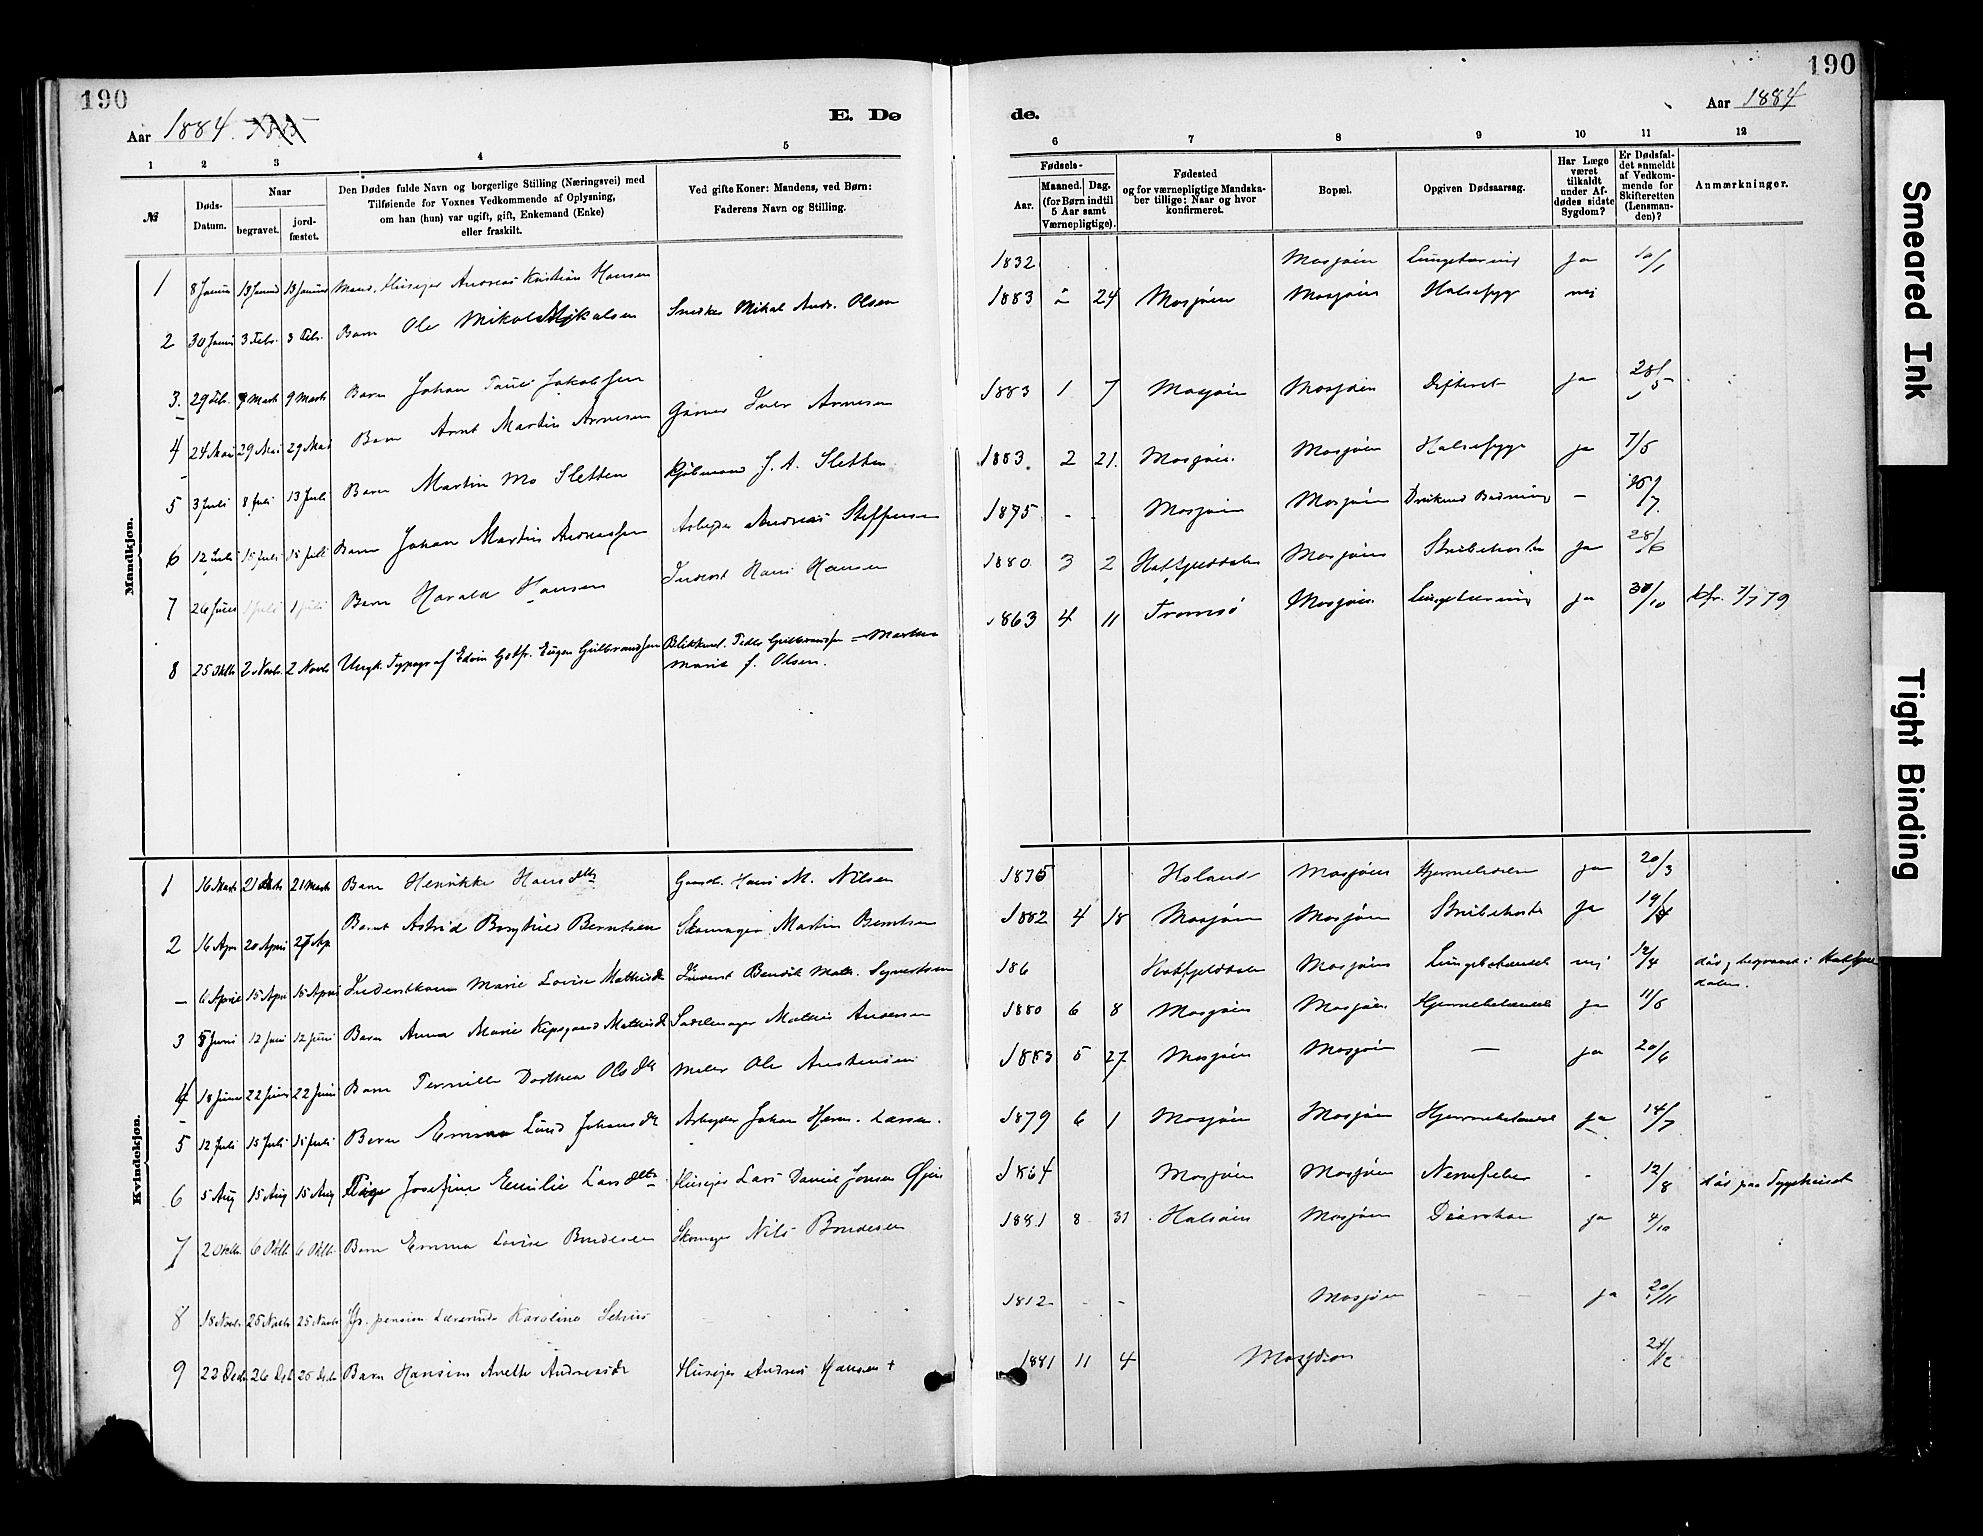 190
Aar 1884.
E. Dø
1 2 3 4 5
№
Døds-Datum.
Naar
begravet.
jord-fæstet.
Den Dødes fulde Navn og borgerlige Stilling (Næringsvei) med
Tilføiende for Voxnes Vedkommende af Oplysning,
om han (hun) var ugift, gift, Enkemand (Enke)
eller fraskilt.
Ved gifte Koner: Mandens, ved Børn:
Faderens Navn og Stilling.
Mandkjøn.
1 8 Januar 13 Januar 13 Januar Husejer Andreas Kristian Hansen
2 30 Janu 3 Febr. 3 Febr. Barn Ole Mikal Mikalsen Snedker Mikal Andr. Olsen
3. 29 Feb. 9 Marts 9 Marts Barn Johan Jakobsen
4 24 Mai 29 Mai 29 Mai Barn Arnt Martin Arnesen Garver Iver Arnesen
5 3 Juli 8 Juli 13 Juli Barn Martin Mo Sletten Kjøbmand J. A. Sletten
6 12 Juli 15 Juli 15 Juli Barn Johan Martin Andreassen Arbejder Andreas Steffensen
7 26 Juni 1 Juli 1 Juli Barn Harald Hansen Inderst Hans Hansen
8 25 Oktb 2 Novb. 2 Novb Ungk. Typograf Edvin Gotfr. Eugen Gulbrandsen Blikkensl. Peder Gulbrandsen = Marthea
Marie f. Olsen.
Kvindekjøn.
1 16 Marts 21 Marts 21 Marts Barn Henrikke Hansdtr Gaardb. Hans M. Nilsen
2 16 Apr 20 April 27 Ap. Barnet Astrid Borghild Berntsen Skomager Martin Berntsen
– 6 April 15 Apr 15 April Inderstkone Marie Lovise Mathisd Inderst Bendik Math. Syvertsen
3 8 Juni 12 Juni 12 Juni Barn Anna Marie Mathisd Sadelmager Mathis Andersen
4 18 Juni 22 Juni 22 Juni Barn Pernille Dorthea Olsdtr Maler Ole Austensen
5 12 Juli 15 Juli 15 Juli Barn Emma Lund Johansdtr Arbejder Johan Herm. Larsen.
6 5 Aug 15 Aug 15 Aug Pige Josefine Emilie Larsdtr Husejer Lars Daniel Jonsen Øjen
7 2 Oktb 6 Oktb 6 Oktb. Barn Emma Lovise Bendesen Skomager Nils Bendesen
8 18 Novb 25 Novb 25 Novb pension. Karoline
9 22 Decb 26 Deb 26 Deb Barn Hansine Anette Andreasdtr Husejer Andreas Hansen +
190
Aar 1884
de.
6 7 8 9 10 11 12
Fødsels-
Aar.
Maaned. Dag.
(for Børn indtil
5 Aar samt
Værnepligtige).
Fødested
og for værnepligtige Mandska-
ber tillige: Naar og hvor
konfirmeret.
Bopæl.
Opgiven Dødsaarsag.
Har Læge
været
tilkaldt
under Af-
dødes sidste
Sygdom?
Er Dødsfal-
det anmeldt
af Vedkom-
mende for
Skifteretten
(Lensman-
den)?
Anmærkninger.
1832 Mosjøen Lungetæring ja 10/1
1883 24 Mosjøen Mosjøen Halsesyge nej
1883 1 7 Mosjøen Mosjøen Difterit ja 28/5
1883. 2 21. Mosjøen. Mosjøen Halsesyge ja 7/6
1875 - - Mosjøen Mosjøen Druknet Badning –
1880 3 2 Hatfjelddalen Mosjøen Strubehoste ja 28/6
1863 4 11 Tromsø Mosjøen. Lungetæring ja 30/10 kfr. 79
1875 Holand Mosjøen ja 20/3
1882 4 18 Mosjøen Mosjøen Strubehoste ja 19/4
186 Hatfjelddalen Mosjøen Lungebetændel nej 12/4 død, begravet i Hatfjel-
dalen.
1880 6 8 Mosjøen Mosjøen. Hjernebetændel ja 11/6
1883 5 27 Mosjøen Mosjøen – ja 20/6
1879 6 1 Mosjøen Mosjøen Hjernebetændel ja 14/7
1864 Mosjøen Mosjøen Nervefeber - 12/8 død paa Sygehuset
1881 8 31 Halsøen Mosjøen Diarrhoe ja 4/10
1812 - - Mosjøen – – ja 20/11
1881 11 4 Mosjøen
Smeared Ink
Tight Binding